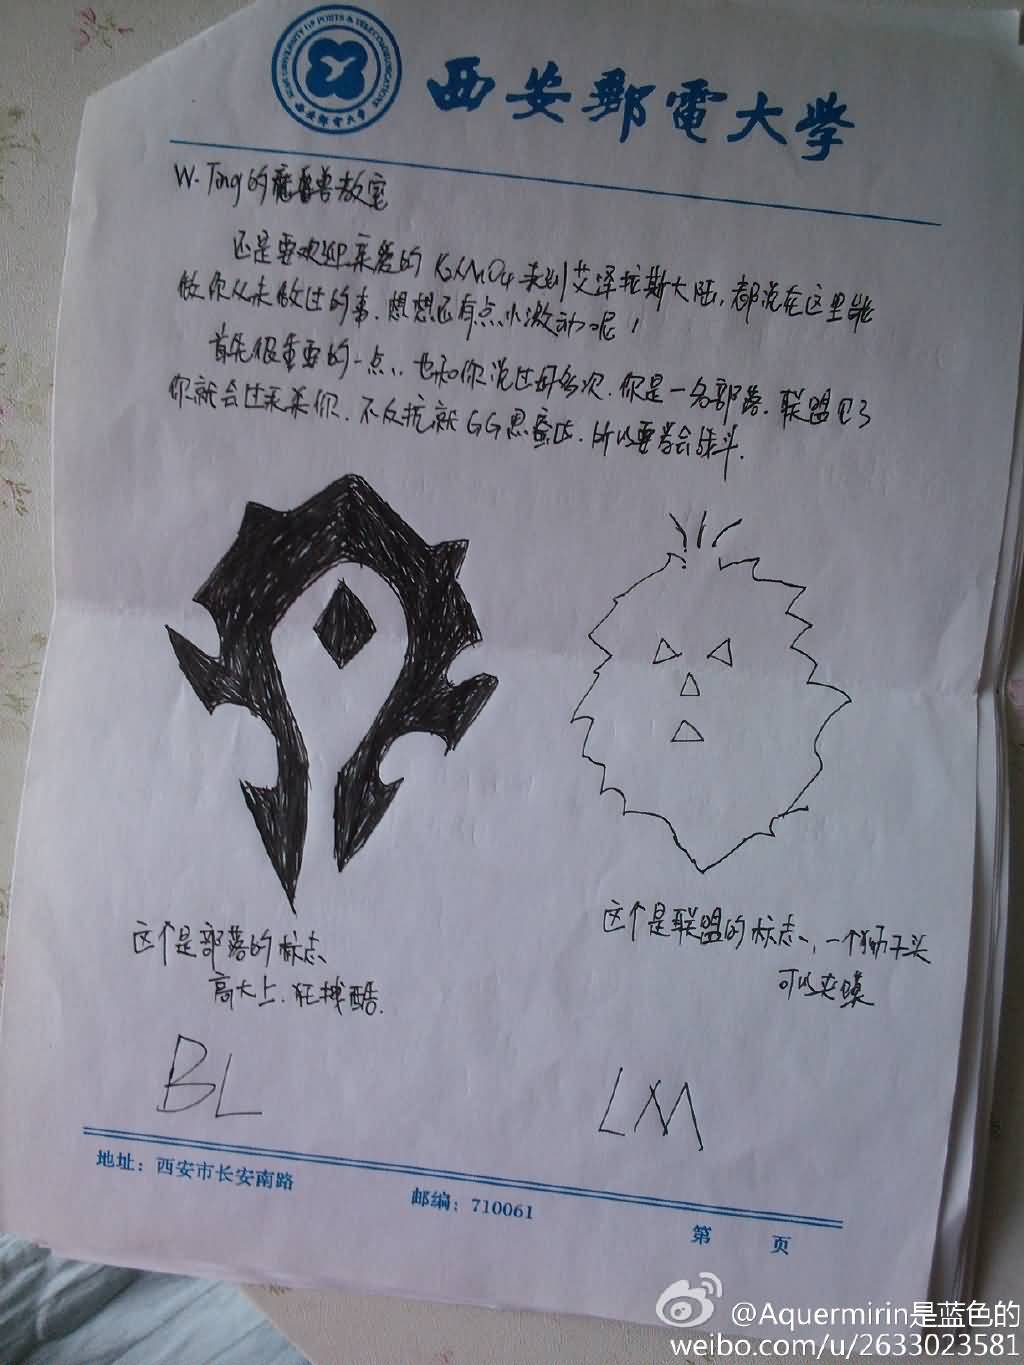 XI'AN UNIVERSITY OF POSTS & TELECOMMUNICATIONS
西安邮电大学
西安郵電大学
W·Tang的魔兽教室
还是要欢迎亲爱的K2MnO4来到艾泽拉斯大陆,都说在这里能
做你从未做过的事,想想还有点小激动呢!
首先很重要的一点,也和你说过好多次,你是一名部落,联盟见了
你就会过来杀你,不反抗就GG思密达,所以要学会战斗.
这个是部落的标志
高大上,狂拽酷.
这个是联盟的标志,一个狮子头
可以夹馍
BL
LM
地址:西安市长安南路
邮编:710061
第 页
@Aquermirin是蓝色的
weibo.com/u/2633023581